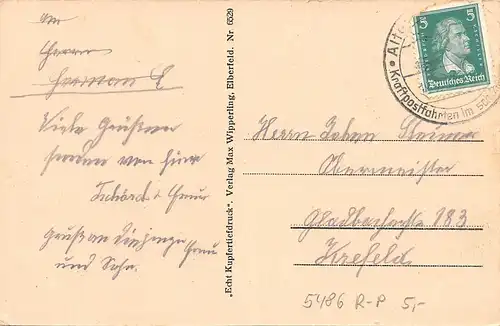 An
Herrn
Herman E
Viele Grüsse
senden von hier
Schärd + Frau
Gruß an Frau
und Sohn.
„Echt Kupfertiefdruck“. Verlag Max Wipperling, Elberfeld. Nr. 6529
5 5
Deutsches Reich
Alte
Kraftpostfahrten im
Herrn Johan
Obermeister
Gladbacherstr 183
Krefeld
5486 R-P 5,-